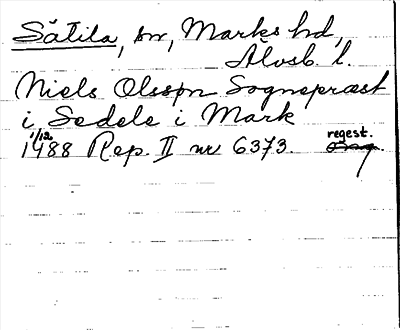 Sätila, sn, Marks hd,
Älvsb. l.
Niels Olsspn Sognepræst
i Sedele i Mark
1/12 regest.
1488 Rep. II nr 6373. Orig.